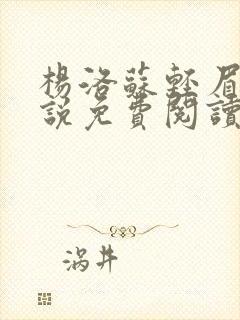 楊洛蘇輕眉
說免費閱讀
涡井